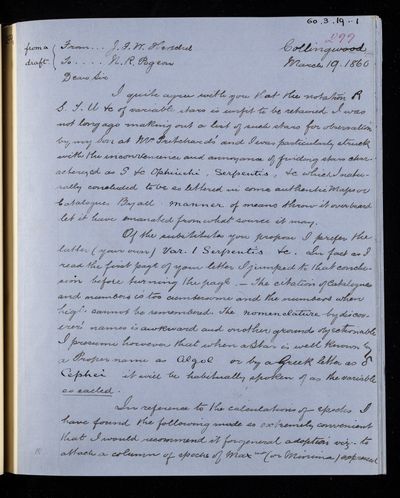 60.3.19.-1
299
from a
draft
From... J. F. W. Herschel
Collingwood
To..... N. R. Pogson
March 19. 1860
Dear Sir
I quite agree with you that the notation R
S. T. U &c of variable stars is unfit to be retained. I was
not long ago making out a list of such stars for observation
by my son at Mr Pritchard's and I was particularly struck
with the inconvenience and annoyance of finding stars char-
acterized as S &c Ophiuchi, Serpentis, &c which I natu-
rally concluded to be so lettered in some authentic Map or
Catalogue. By all manner of means throw it overboard
let it have emanated from what source it may.
Of the substitutes you propose I prefer the
latter (your own) Var. 1 Serpentis &c. In fact as I
read the first page of your letter I jumped to that conclu-
sion before turning the page. — The citation of Catalogues
and numbers is too cumbersome and the numbers when
high cannot be remembered. The nomenclature by discov-
erers names is awkward and on other grounds objectionable
I presume however that when a Star is well known by
a Proper name as Algol or by a Greek letter as δ
Cephei it will be habitually spoken of as the variable
so called.
In reference to the calculations of epochs I
have found the following mode so extremely convenient
that I would recommend it for general adoption viz. to
attach a column of epochs of Max ma (or Minima) expressed